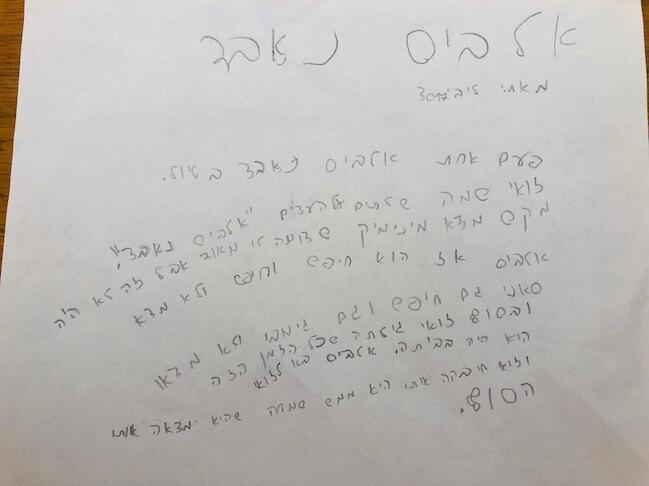 אלביס נאבד
מאת:
פעם אחת אלביס נאבד בטיול.
זואי שמה שלתים על העצים "אלביס נאבד",
מקס מצא מינימיק שדומה לו מאוד אבל זה לא היה
אלביס אז הוא חיפש וחיפש ולא מצא
סאני גם חיפש וגם גימבו ולא מצאו
ובסוף זואי גילתה שכל הזמן הזה
הוא היה בביתה. אלביס בא לזואי
וזואי חיבקה אותו היא ממש שמחה שהיא מצאה אותו
הסוף.